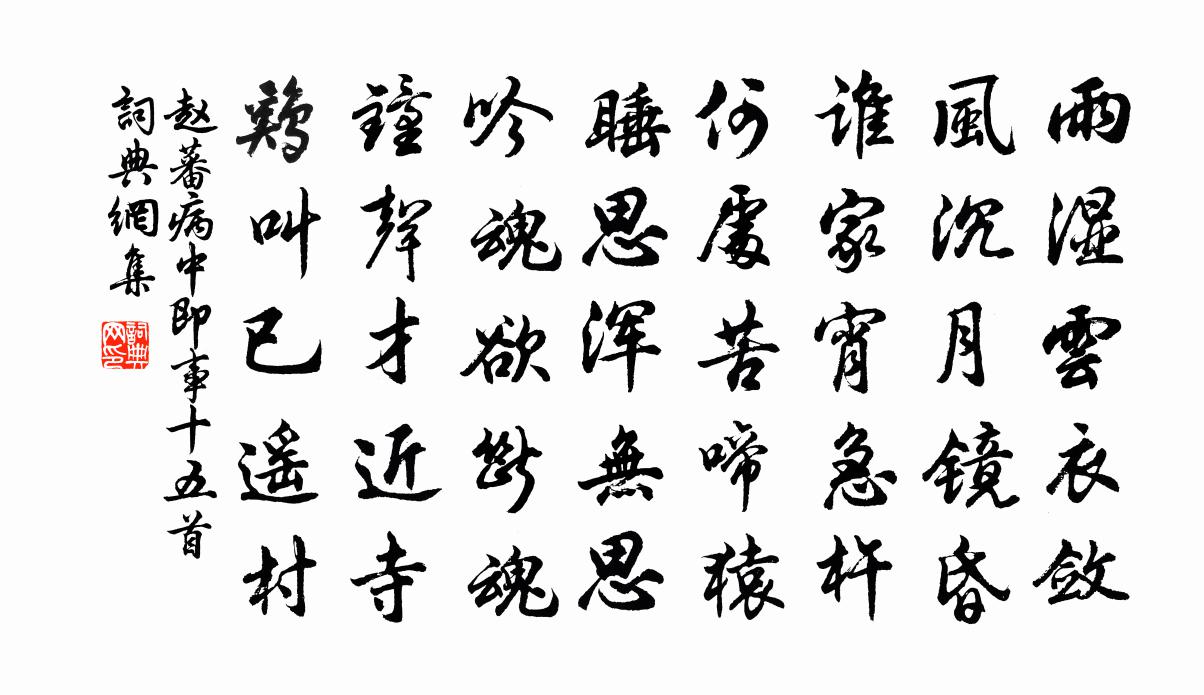 雨湿雲衣斂
風沉月镜昏
谁家宵急杵
何處苦啼猿
睡思浑無思
吟魂欲斷魂
鐘聲才近寺
鷄叫已遥村
赵蕃病中即事十五首
詞典網集
詞典网印